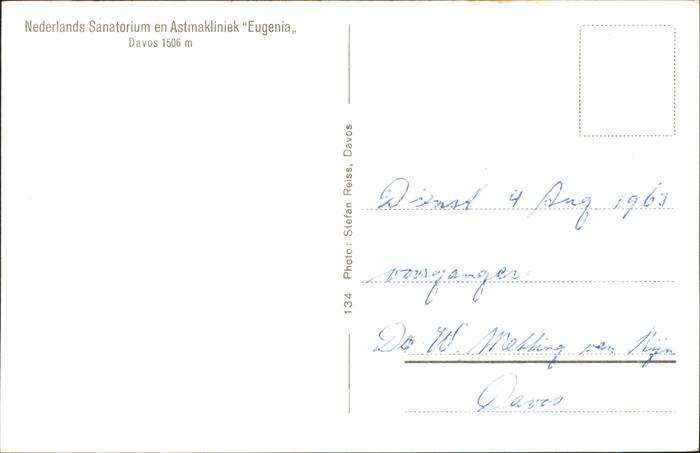 Nederlands Sanatorium en Astmakliniek "Eugenia„
Davos 1506 m
134 Photo: Stefan Reiss, Davos
Dienst 4 Aug 1963
voorganger:
Ds W. Metting van Rijn
Davos